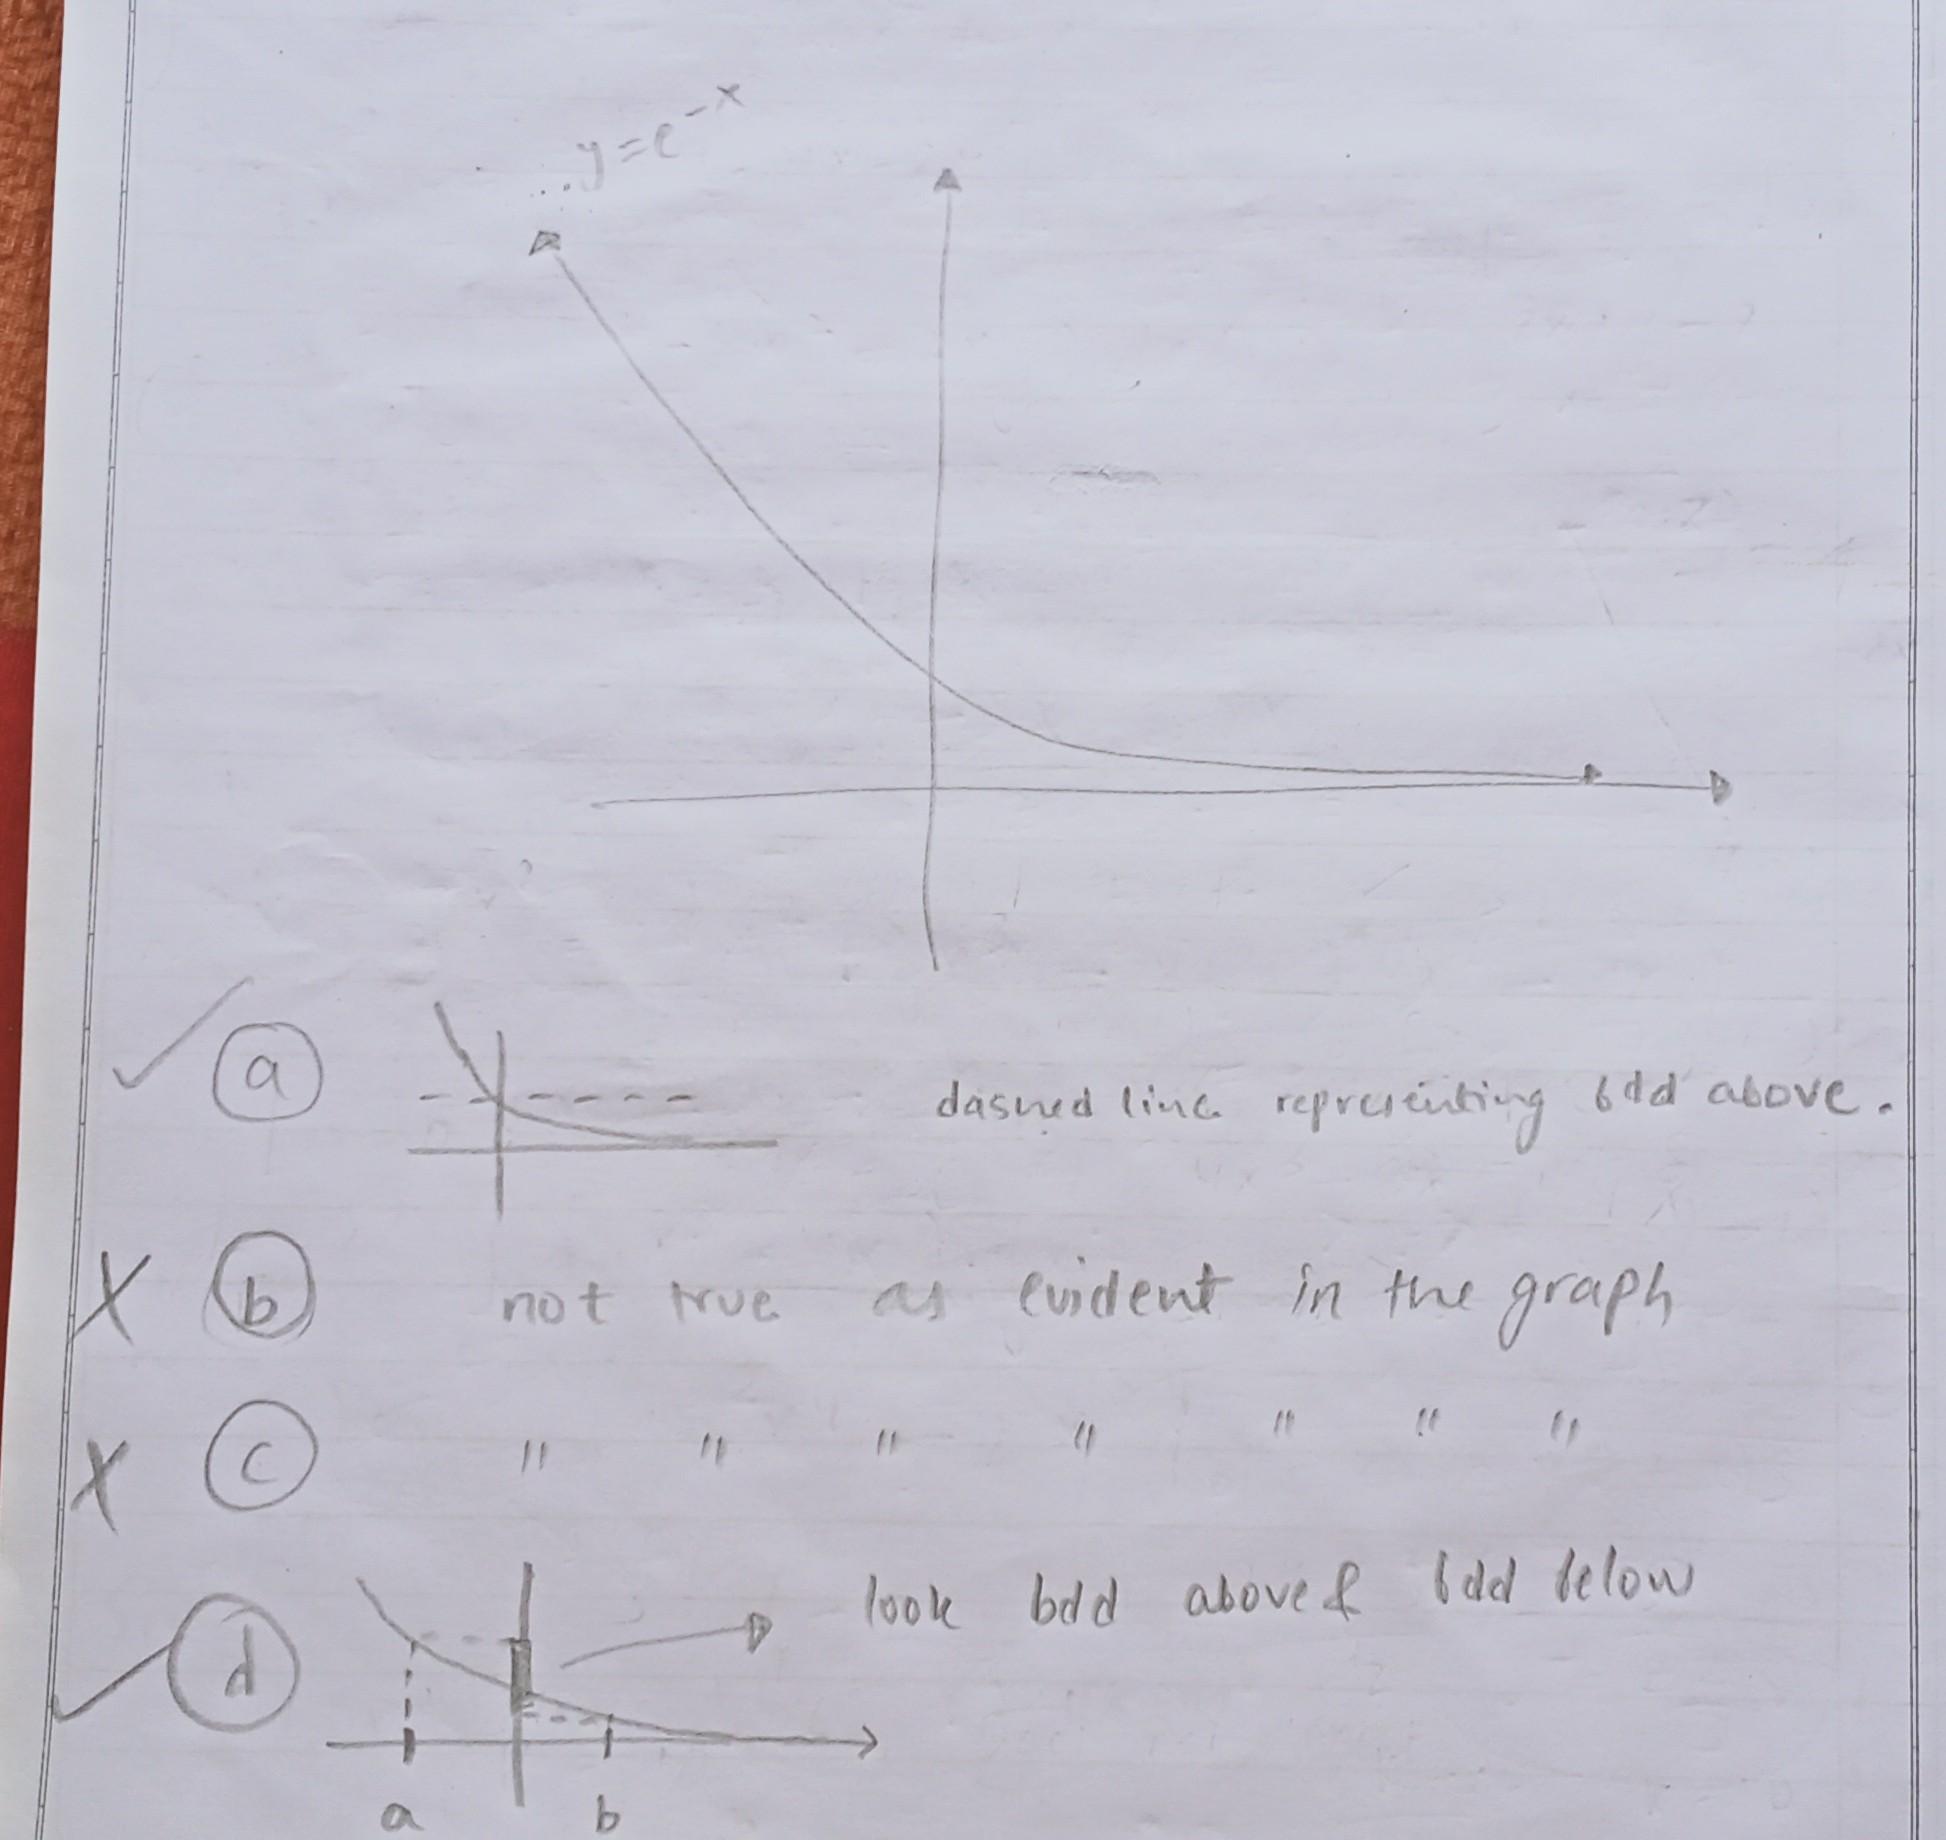 y = e^-x
a dashed line representing bdd above.
b not true as evident in the graph
c " " " " " " "
d look bdd above & bdd below
a b